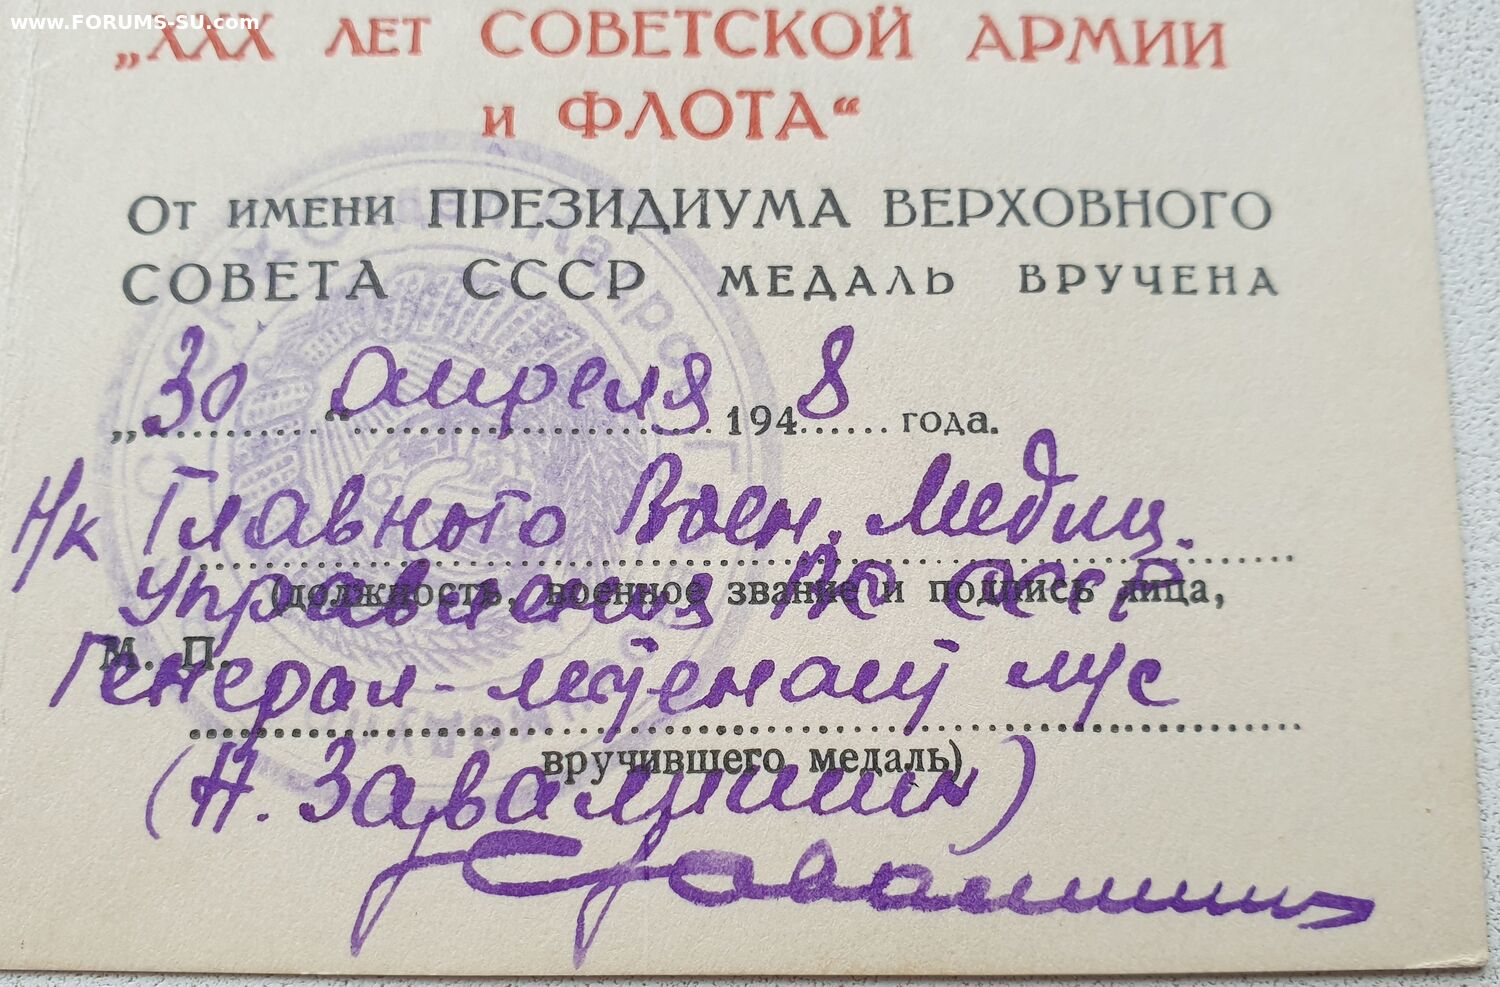 www.FORUMS-SU.com
„XXX ЛЕТ СОВЕТСКОЙ АРМИИ
И ФЛОТА“
От имени ПРЕЗИДИУМА ВЕРХОВНОГО
СОВЕТА СССР МЕДАЛЬ ВРУЧЕНА
„30“ апреля 1948 года.
Н/к Главного Воен. Медиц.
(должность, военное звание и подпись лица,
Управления ВС СССР
М. П.
Генерал-лейтенант м/с
вручившего медаль)
(Н. Завалишин)